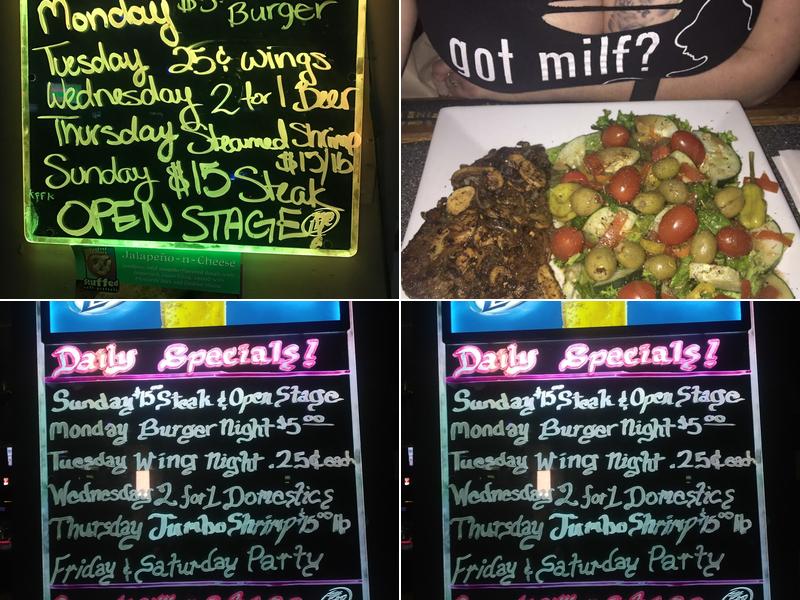 Monday $5 Burger
Tuesday 25¢ wings
Wednesday 2 for 1 Beer
Thursday Steamed Shrimp
$15/lb
Sunday $15 Steak
OPEN STAGE
Jalapeño-n-Cheese
stuffed
got milf?
Daily Specials!
Sunday $15 Steak & Open Stage
Monday Burger Night $5.00
Tuesday Wing Night .25¢ each
Wednesday 2 for 1 Domestics
Thursday Jumbo Shrimp $15.00 lb
Friday & Saturday Party
Daily Specials!
Sunday $15 Steak & Open Stage
Monday Burger Night $5.00
Tuesday Wing Night .25¢ each
Wednesday 2 for 1 Domestics
Thursday Jumbo Shrimp $15.00 lb
Friday & Saturday Party